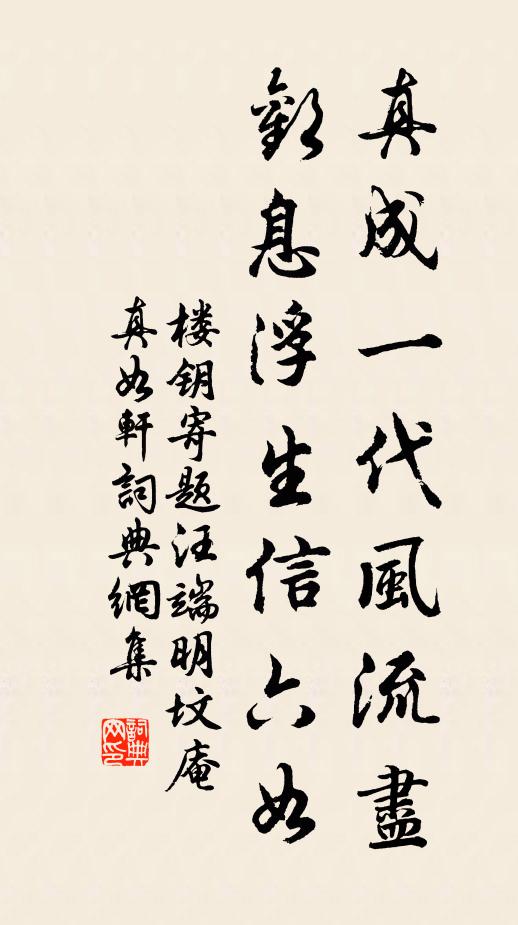 真成一代風流盡
歎息浮生信六如
楼钥寄题汪端明坟庵
真如軒詞典網集
詞典网印